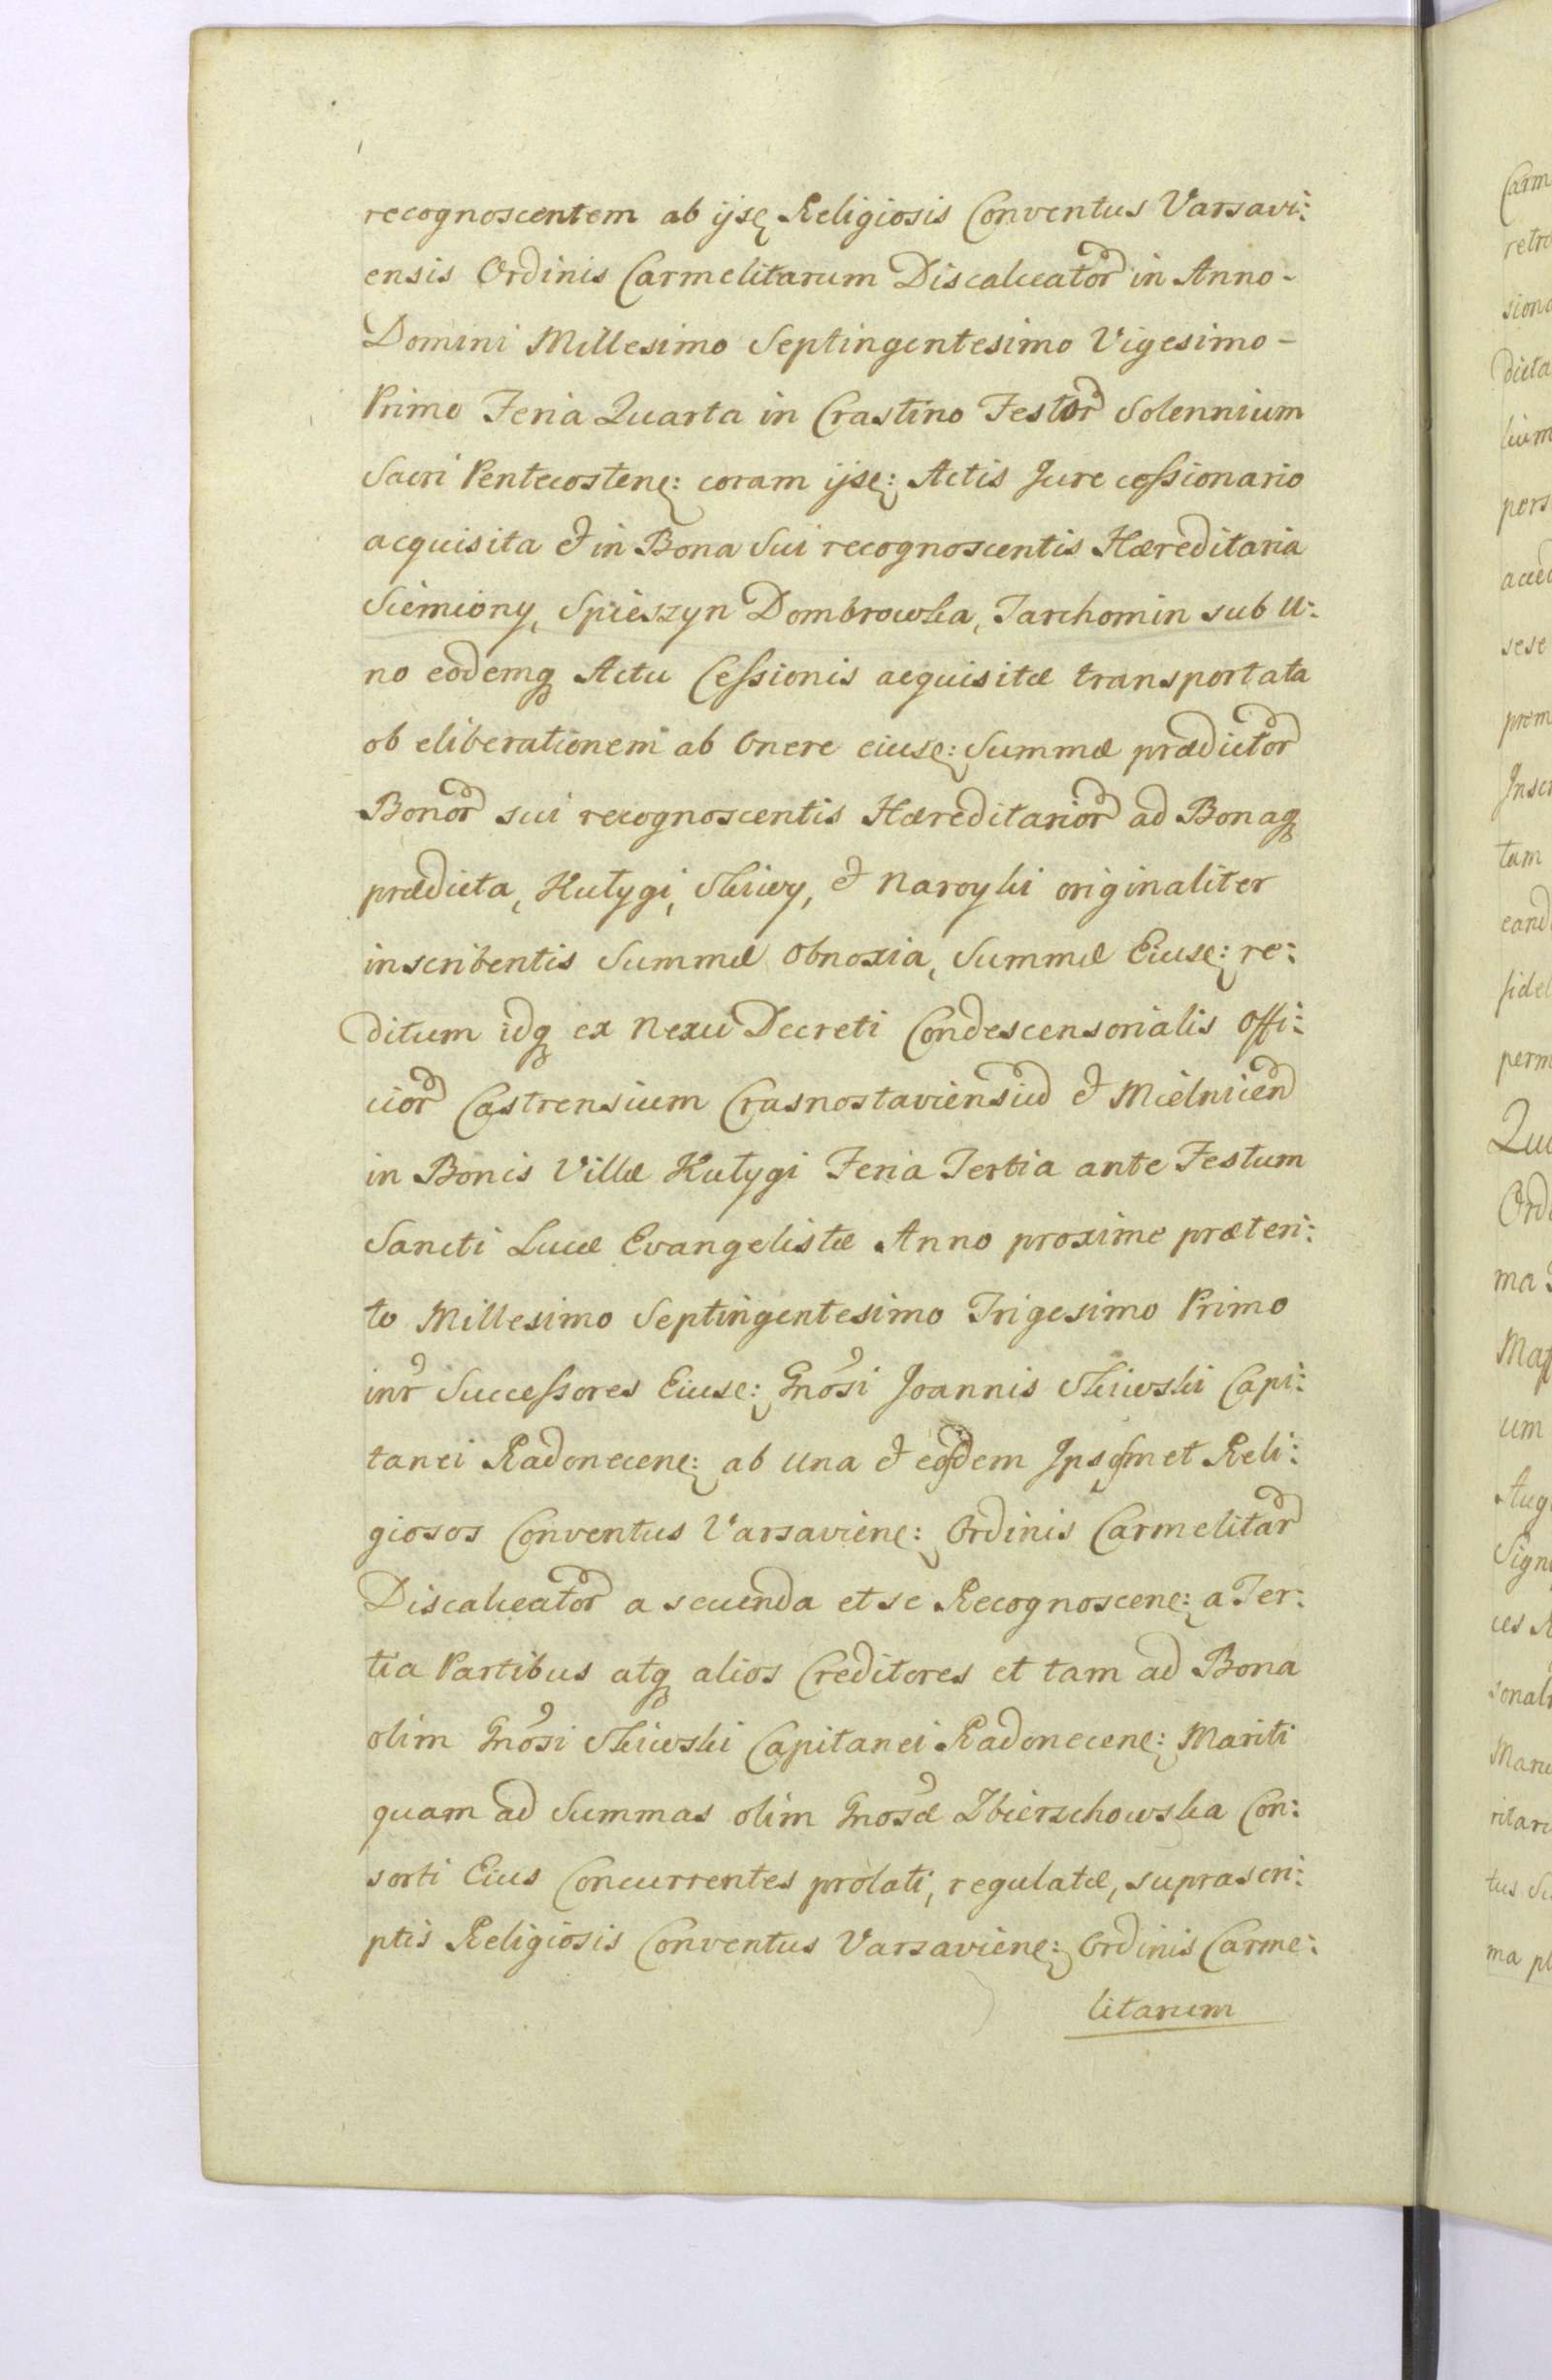 recognoscentem ab ijsę Religiosis Conventus Varsavi:
ensis Ordinis Carmelitarum Discalceator in Anno-
Domini Millesimo Septingentesimo Vigesimo-
Primo Feria Quarta in Crastino Festor Solennium
Sacri Pentecostenę: coram ijsę: Actis Jure cessionario
acquisita et in Bona Sui recognoscentis Hæreditaria
Siemiony, Spieszyn Dombrowka, Tarchomin sub U:
no eodemq Actu Cessionis acquisitæ transportata
ob eliberationem ab Onere eiusę: Summæ prædictor
Bonor sui recognoscentis Hæreditarior ad Bonaq
prædicta, Kutygi, Skiwy, et Naroyki originaliter
inscribentis Summæ Obnoxia, Summæ Eiusę: re:
ditum idq ex Nexu Decreti Condescensorialis Offi:
cior Castrensium Crasnostaviensiu et Mielnicen
in Bonis Villæ Kutygi Feria Tertia ante Festum
Sancti Lucæ Evangelistæ Anno proxime præteri:
to Millesimo Septingentesimo Trigesimo Primo
inr Successores Eiusę: Gnosi Joannis Skiwski Capi:
tanei Radonecenę: ab una et eosdem Ipsosmet Reli:
giosos Conventus Varsavienę: Ordinis Carmelitar
Discalceator a secunda et se Recognoscenę: a Ter:
tia Partibus atq alios Creditores et tam ad Bona
olim Gnosi Skiwski Capitanei Radonecenę: Mariti
quam ad Summas olim Gnosæ Zbierzchowska Con:
sorti Eius Concurrentes prolati, regulatæ, suprascri:
ptis Religiosis Conventus Varsavienę: Ordinis Carme:
litarum